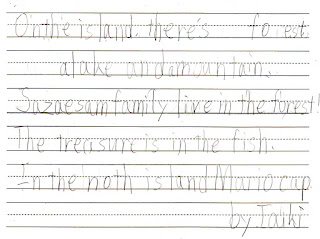 On the island, there's forest
a lake and a mountain.
Sazaesam family live in the forest!
The treasure is in the fish.
In the noth island Mario cup.
by Taiki